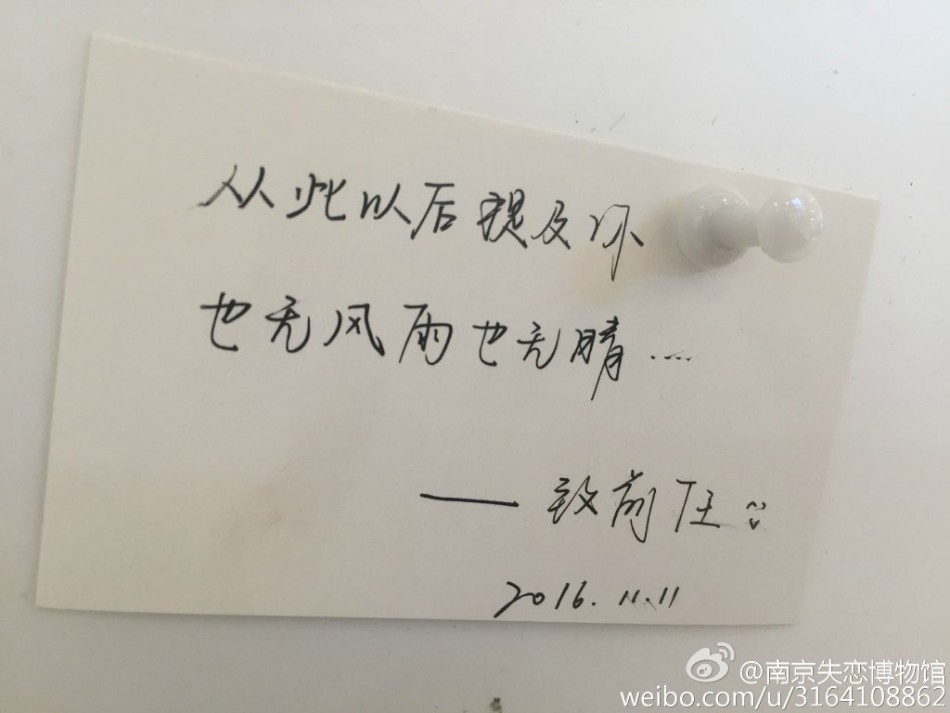 从此以后提及你
也无风雨也无晴....
——致前任
2016.11.11
@南京失恋博物馆
weibo.com/u/3164108862